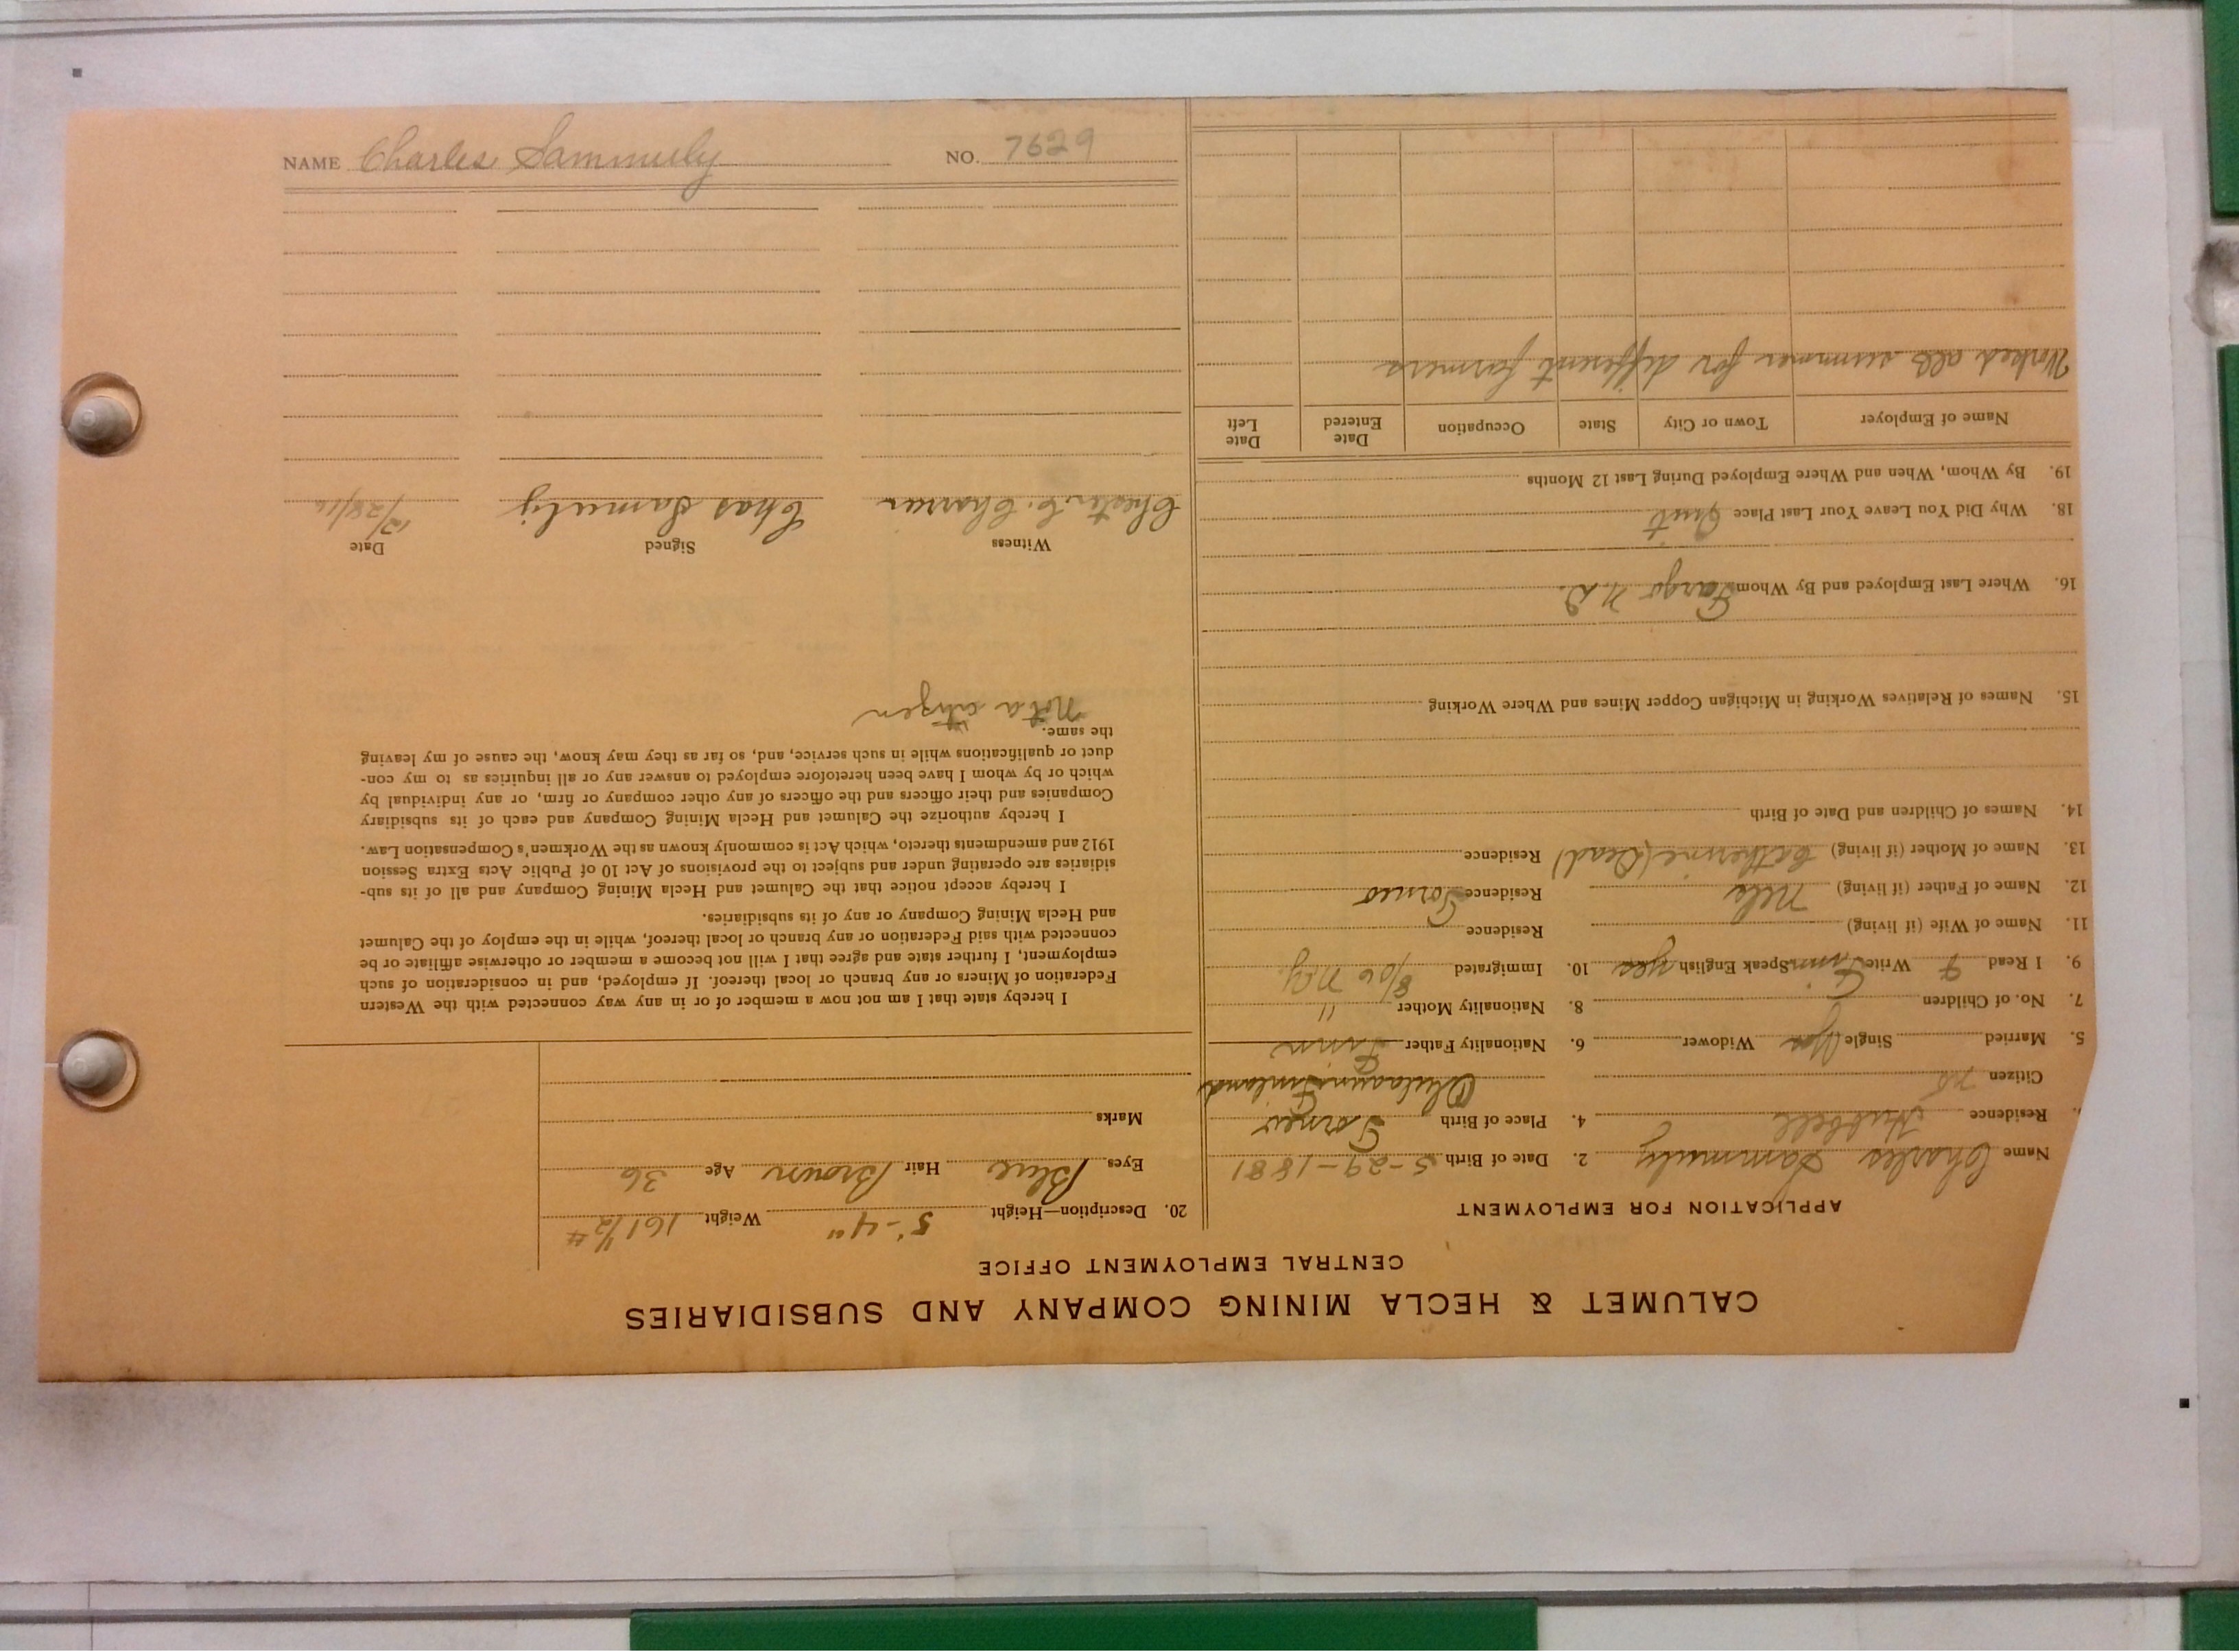 CALUMET & HECLA MINING COMPANY AND SUBSIDIARIES
CENTRAL EMPLOYMENT OFFICE
APPLICATION FOR EMPLOYMENT
Name Charles Sammuly 2. Date of Birth 5-29-1881
Residence Hubbell 4. Place of Birth Torneo
Citizen no Finland
5. Married Single Yes Widower 6. Nationality Father Finn
7. No. of Children 8. Nationality Mother "
9. I Read Write Finn Speak English yes 10. Immigrated 8/06 N.Y.
11. Name of Wife (if living) Residence
12. Name of Father (if living) Nels Residence Torneo
13. Name of Mother (if living) Catherine (Dead) Residence
14. Names of Children and Date of Birth
15. Names of Relatives Working in Michigan Copper Mines and Where Working
16. Where Last Employed and By Whom Fargo N.D.
18. Why Did You Leave Your Last Place Quit
19. By Whom, When and Where Employed During Last 12 Months
Name of Employer Town or City State Occupation Date Entered Date Left
Worked all summer for different farmers
20. Description—Height 5'-4" Weight 161 1/2 #
Eyes Blue Hair Brown Age 36
Marks
I hereby state that I am not now a member of or in any way connected with the Western
Federation of Miners or any branch or local thereof. If employed, and in consideration of such
employment, I further state and agree that I will not become a member or otherwise affiliate or be
connected with said Federation or any branch or local thereof, while in the employ of the Calumet
and Hecla Mining Company or any of its subsidiaries.
I hereby accept notice that the Calumet and Hecla Mining Company and all of its sub-
sidiaries are operating under and subject to the provisions of Act 10 of Public Acts Extra Session
1912 and amendments thereto, which Act is commonly known as the Workmen's Compensation Law.
I hereby authorize the Calumet and Hecla Mining Company and each of its subsidiary
Companies and their officers and the officers of any other company or firm, or any individual by
which or by whom I have been heretofore employed to answer any or all inquiries as to my con-
duct or qualifications while in such service, and, so far as they may know, the cause of my leaving
the same.
Not a citizen
Witness Signed Date
Chester C. Chas Samuly 12/28/16
NAME Charles Sammuly NO. 7629